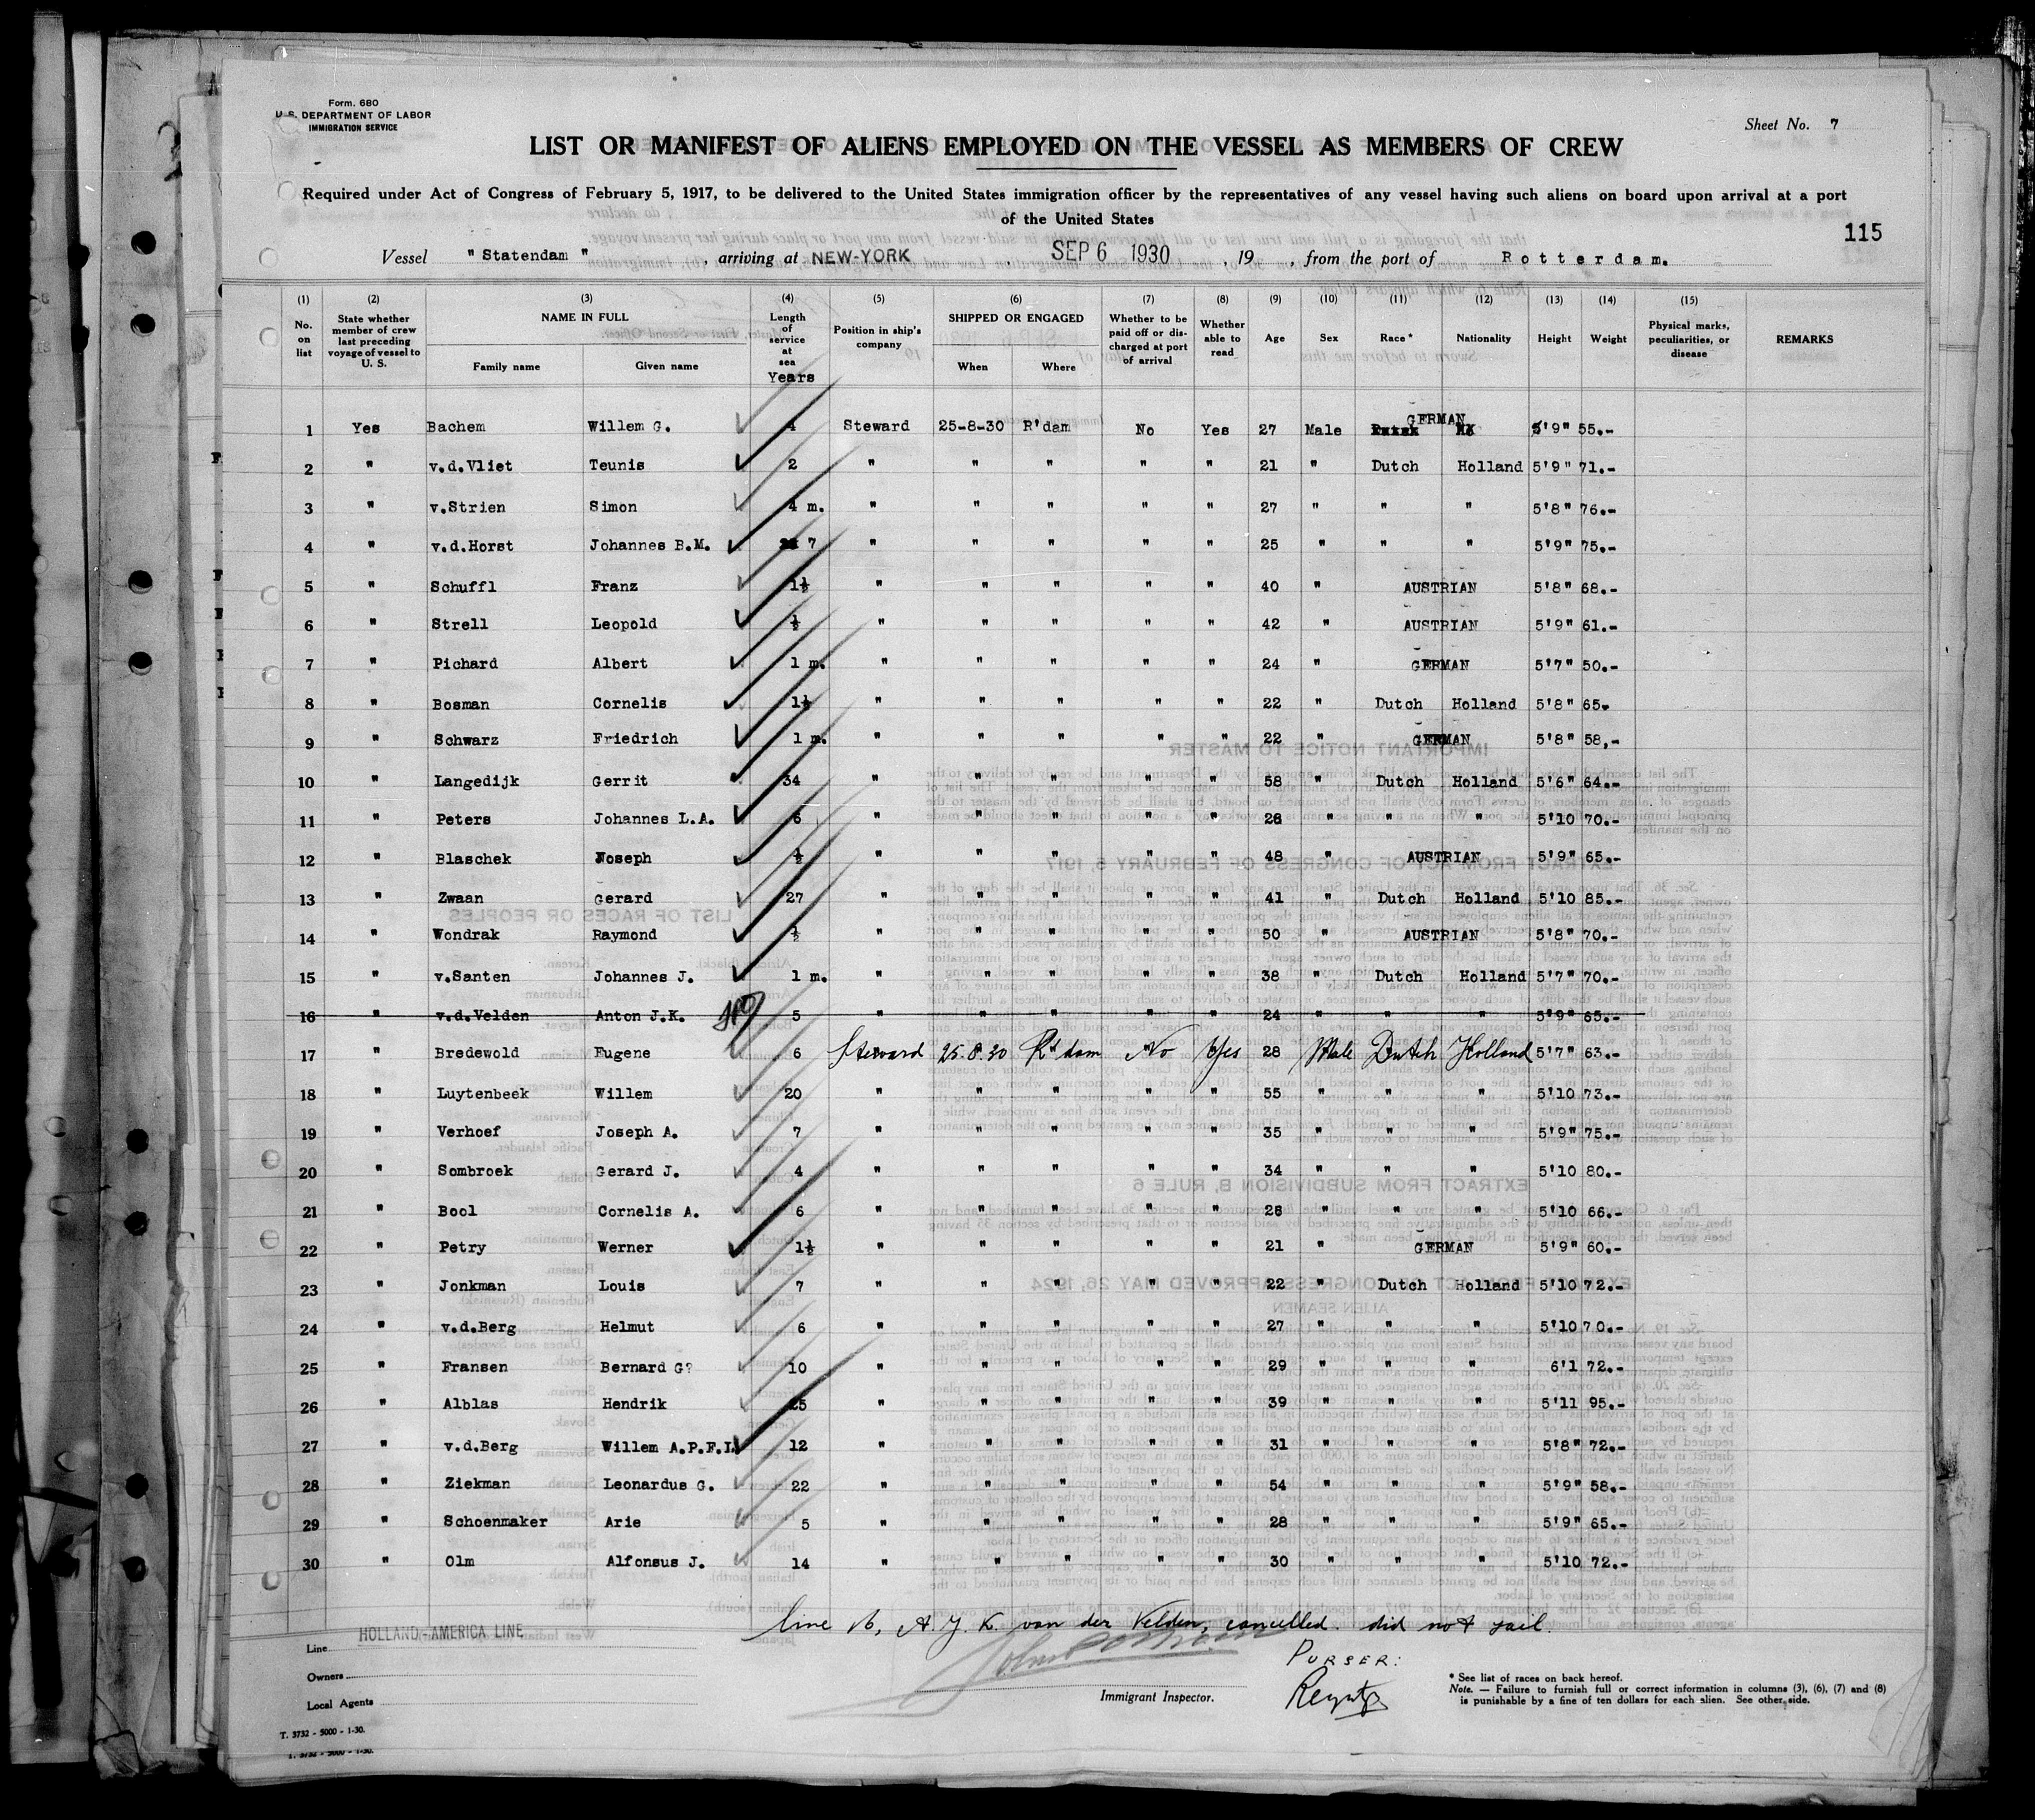 Form. 680
U. S. DEPARTMENT OF LABOR
IMMIGRATION SERVICE
Sheet No. 7
LIST OR MANIFEST OF ALIENS EMPLOYED ON THE VESSEL AS MEMBERS OF CREW
Required under Act of Congress of February 5, 1917, to be delivered to the United States immigration officer by the representatives of any vessel having such aliens on board upon arrival at a port
of the United States
115
Vessel "Statendam", arriving at NEW-YORK, SEP 6 1930, 19 , from the port of Rotterdam.
(1) (2) (3) (4) (5) (6) (7) (8) (9) (10) (11) (12) (13) (14) (15)
No. on list | State whether member of crew last preceding voyage of vessel to U. S. | NAME IN FULL Family name Given name | Length of service at sea Years | Position in ship's company | SHIPPED OR ENGAGED When Where | Whether to be paid off or discharged at port of arrival | Whether able to read | Age | Sex | Race* | Nationality | Height | Weight | Physical marks, peculiarities, or disease | REMARKS
1 Yes Bachem Willem G. 4 Steward 25-8-30 R'dam No Yes 27 Male GERMAN 5'9" 55.-
2 " v.d.Vliet Teunis 2 " " " " " 21 " Dutch Holland 5'9" 71.-
3 " v.Strien Simon 4 m. " " " " " 27 " " " 5'8" 76.-
4 " v.d.Horst Johannes B.M. 7 " " " " " 25 " " " 5'9" 75.-
5 " Schuffl Franz 1½ " " " " " 40 " AUSTRIAN 5'8" 68.-
6 " Strell Leopold ½ " " " " " 42 " AUSTRIAN 5'9" 61.-
7 " Pichard Albert 1 m. " " " " " 24 " GERMAN 5'7" 50.-
8 " Bosman Cornelis 1½ " " " " " 22 " Dutch Holland 5'8" 65.
9 " Schwarz Friedrich 1 m. " " " " " 22 " GERMAN 5'8" 58,-
10 " Langedijk Gerrit 34 " " " " " 58 " Dutch Holland 5'6" 64.-
11 " Peters Johannes L.A. 6 " " " " " 28 " " " 5'10 70.-
12 " Blaschek Joseph ½ " " " " " 48 " AUSTRIAN 5'9" 65.-
13 " Zwaan Gerard 27 " " " " " 41 " Dutch Holland 5'10 85.-
14 " Wondrak Raymond ½ " " " " " 50 " AUSTRIAN 5'8" 70.-
15 " v.Santen Johannes J. 1 m. " " " " " 38 " Dutch Holland 5'7" 70.-
16 " v.d.Velden Anton J.K. 5 " " " " " 24 " " " 5'9" 65.-
17 " Bredewold Eugene 6 Steward 25.8.30 R'dam No Yes 28 Male Dutch Holland 5'7" 63.-
18 " Luytenbeek Willem 20 " " " " " 55 " " " 5'10 73.-
19 " Verhoef Joseph A. 7 " " " " " 35 " " " 5'9" 75.-
20 " Sombroek Gerard J. 4 " " " " " 34 " " " 5'10 80.-
21 " Bool Cornelis A. 6 " " " " " 28 " " " 5'10 66.-
22 " Petry Werner 1½ " " " " " 21 " GERMAN 5'9" 60.-
23 " Jonkman Louis 7 " " " " " 22 " Dutch Holland 5'10 72.-
24 " v.d.Berg Helmut 6 " " " " " 27 " " " 5'10 70.-
25 " Fransen Bernard G? 10 " " " " " 29 " " " 6'1 72.-
26 " Alblas Hendrik 25 " " " " " 39 " " " 5'11 95.-
27 " v.d.Berg Willem A.P.F.L. 12 " " " " " 31 " " " 5'8" 72.-
28 " Ziekman Leonardus G. 22 " " " " " 54 " " " 5'9" 58.-
29 " Schoenmaker Arie 5 " " " " " 28 " " " 5'9" 65.-
30 " Olm Alfonsus J. 14 " " " " " 30 " " " 5'10 72.-
line 16, A. J. K. van der Velden, cancelled. did not sail.
Line HOLLAND-AMERICA LINE
Owners
Local Agents
Immigrant Inspector.
PURSER:
* See list of races on back hereof.
Note. — Failure to furnish full or correct information in columns (3), (6), (7) and (8)
is punishable by a fine of ten dollars for each alien. See other side.
T. 3732 - 5000 - 1-30.